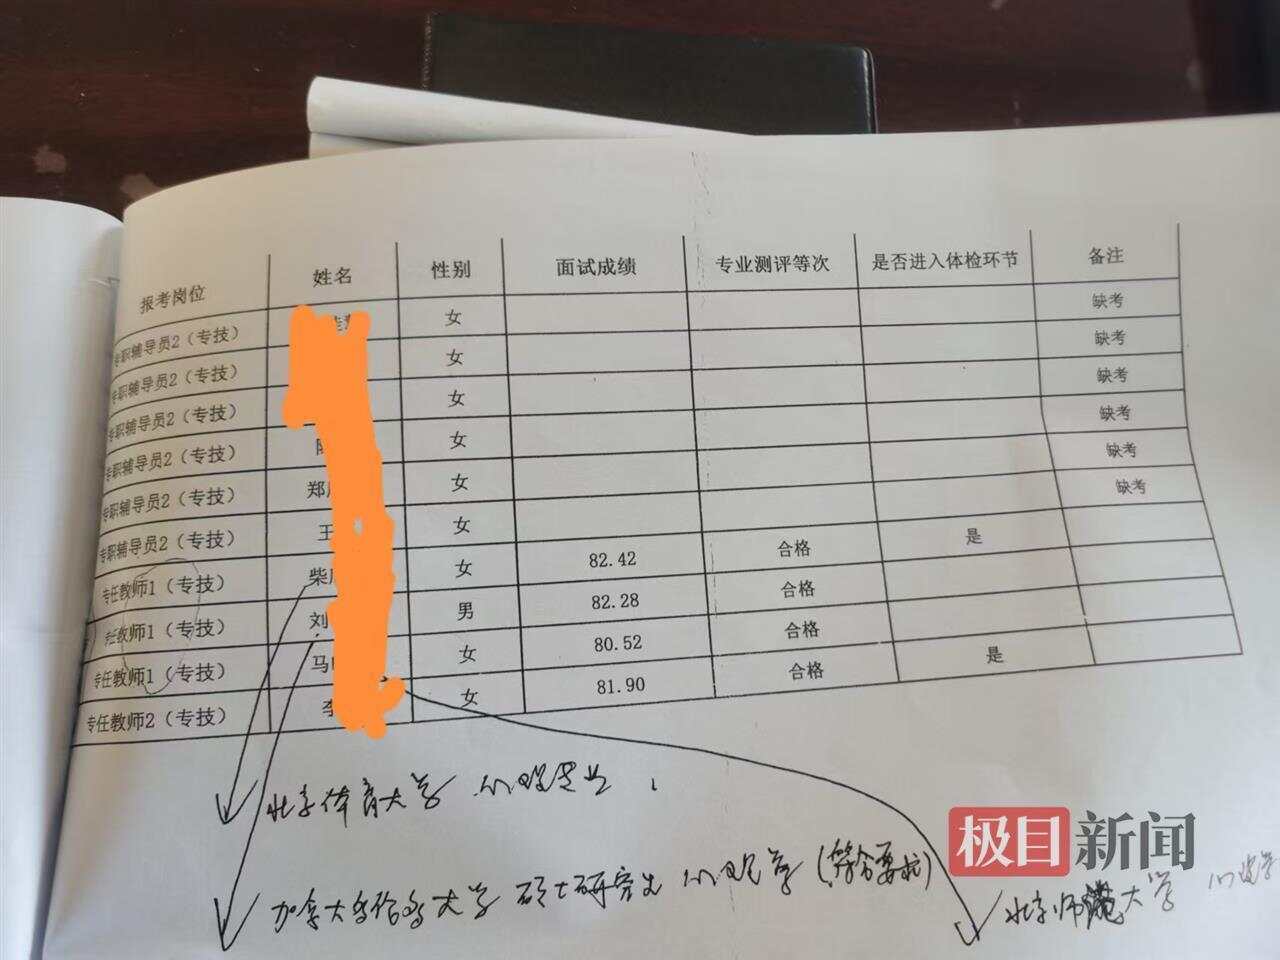 报考岗位 姓名 性别 面试成绩 专业测评等次 是否进入体检环节 备注
专职辅导员2（专技） 女 缺考
专职辅导员2（专技） 女 缺考
专职辅导员2（专技） 女 缺考
专职辅导员2（专技） 女 缺考
专职辅导员2（专技） 郑 女 缺考
专职辅导员2（专技） 王 女 缺考
专任教师1（专技） 柴 女 82.42 合格 是
专任教师1（专技） 刘 男 82.28 合格
专任教师1（专技） 马 女 80.52 合格
专任教师2（专技） 李 女 81.90 合格 是
北京体育大学 心理专业
加拿大 大学 硕士研究生 心理学（符合要求）
北京师范大学 心理学
极目新闻